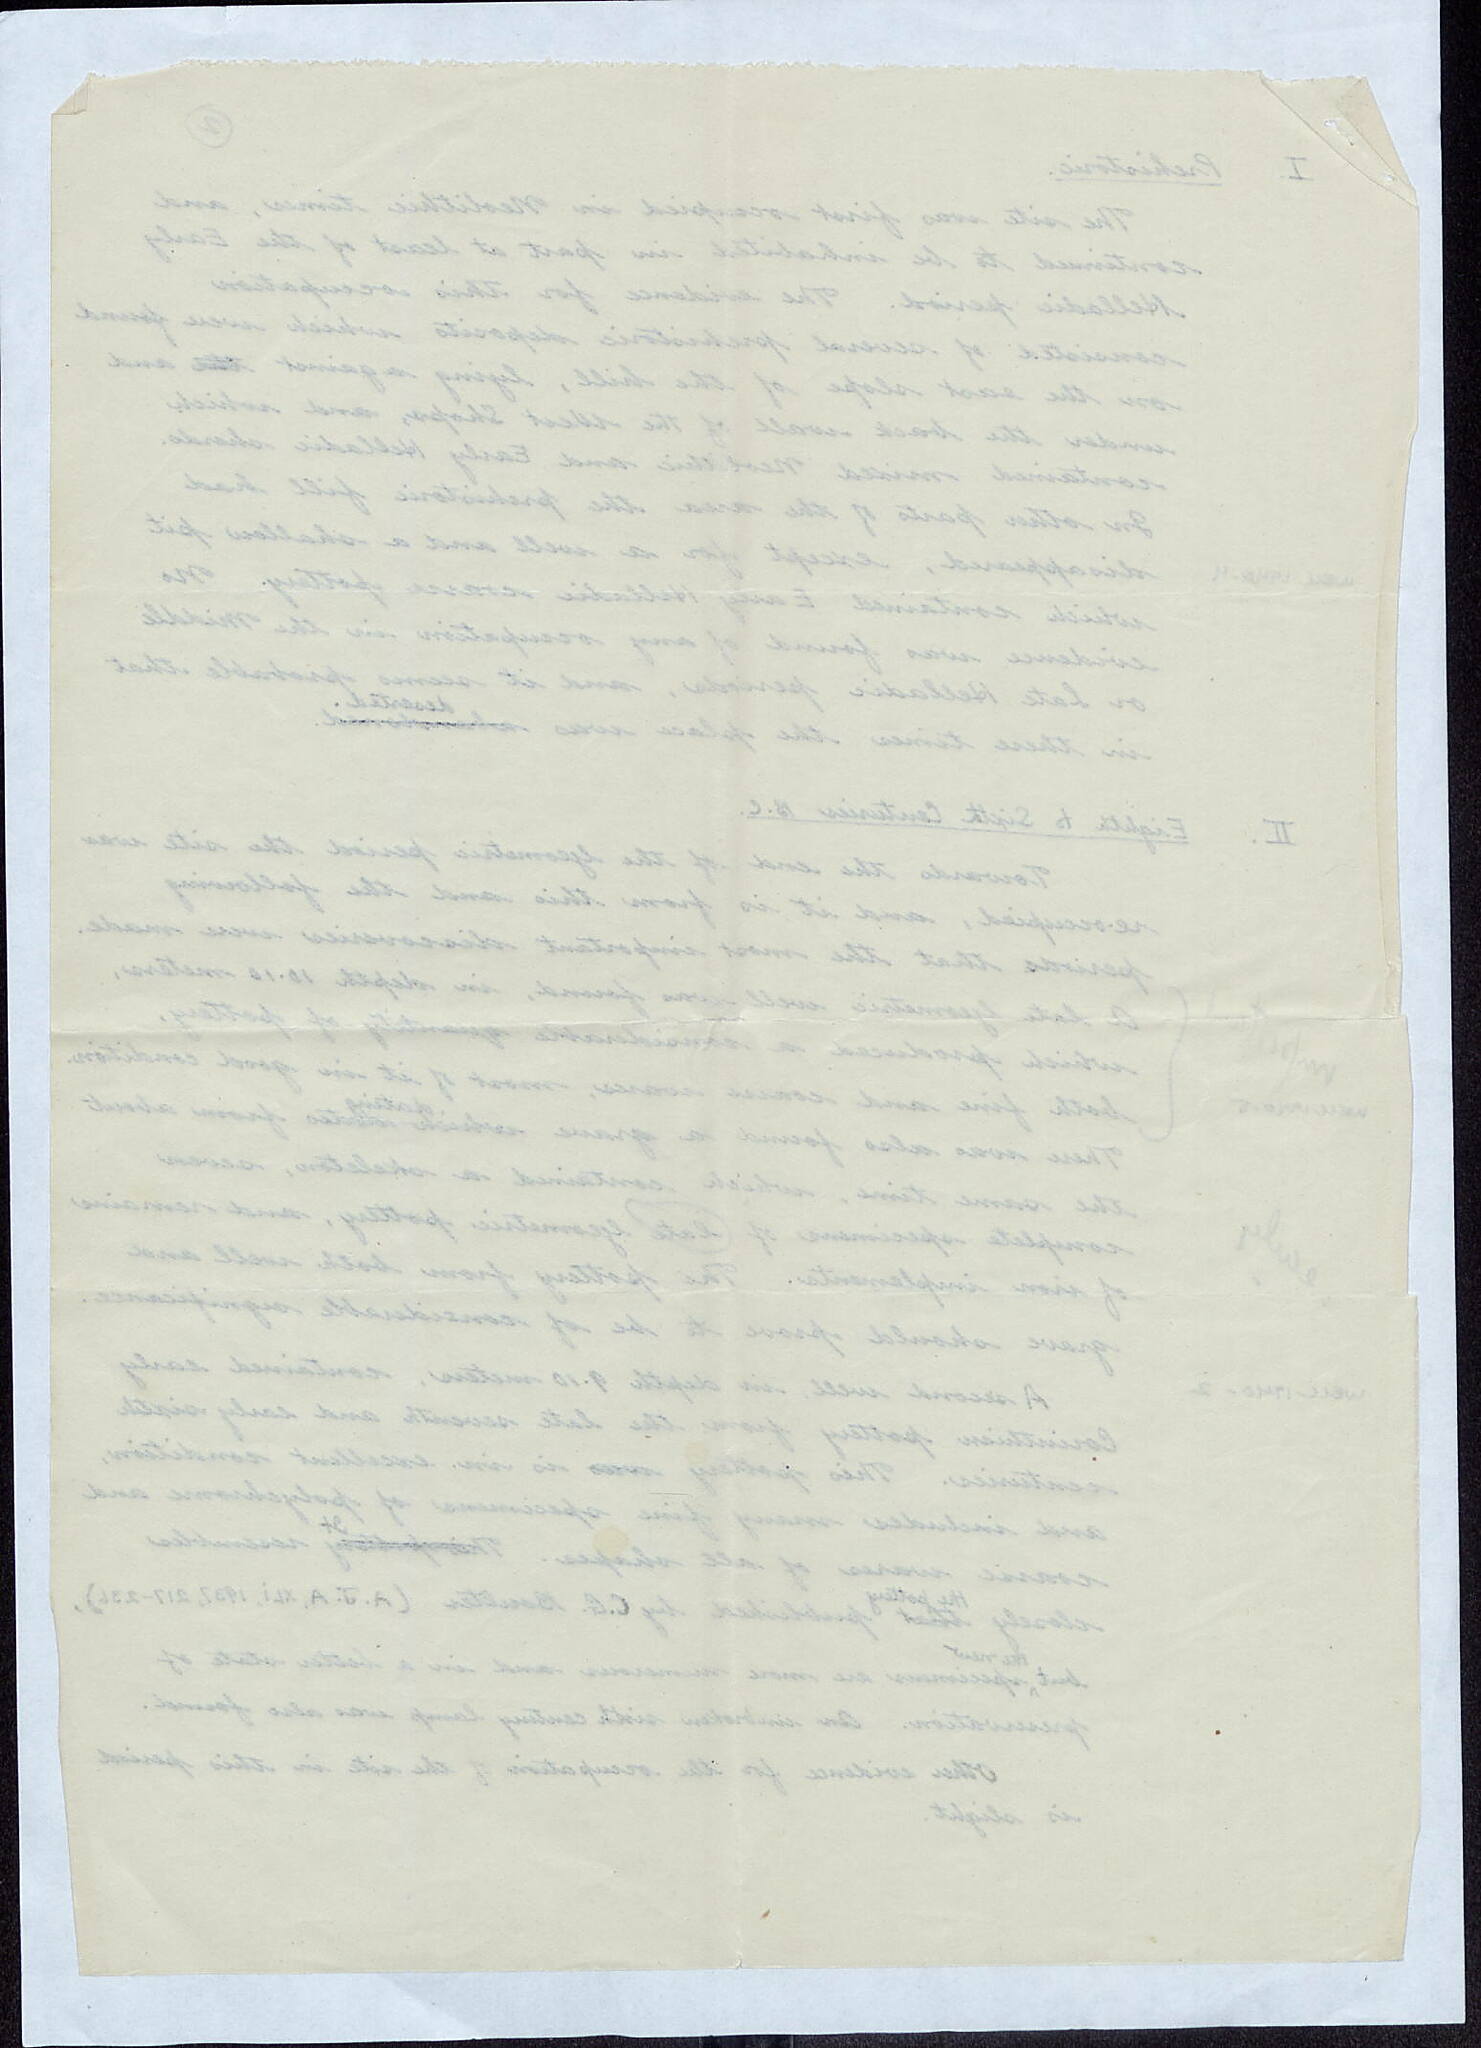 ②
I. Prehistoric.
The site was first occupied in Neolithic times, and
continued to be inhabited in part at least of the Early
Helladic period. The evidence for this occupation
consisted of several prehistoric deposits which were found
on the east slope of the hill, lying against and
under the back wall of the West Shops, and which
contained mixed Neolithic and Early Helladic sherds.
In other parts of the area the prehistoric fill had
disappeared, except for a well and a shallow pit
which contained Early Helladic coarse pottery. No
evidence was found of any occupation in the Middle
or Late Helladic periods, and it seems probable that
deserted.
in these times the place was abandoned.
II. Eighth to Sixth Centuries B.C.
Towards the end of the Geometric period the site was
re-occupied, and it is from this and the following
periods that the most important discoveries were made.
A late Geometric well was found, in depth 10.10 meters,
which produced a considerable quantity of pottery,
both fine and coarse wares, most of it in good condition.
dating
There was also found a grave which dates from about
well 1940-5
the same time, which contained a skeleton, seven
complete specimens of late Geometric pottery, and remains
of iron implements. The pottery from both well and
grave should prove to be of considerable significance.
A second well, in depth 9.10 meters, contained early
well 1940-2
Corinthian pottery from the late seventh and early sixth
centuries. This pottery was is in excellent condition,
and includes many fine specimens of polychrome and
It
coarse wares of all shapes. This pottery resembles
the pottery
closely that published by C.G. Boulter (A.J.A, XLI, 1937, 217-236),
the new
but specimens are more numerous and in a better state of
preservation. An unbroken sixth century lamp was also found.
Other evidence for the occupation of the site in this period
is slight.